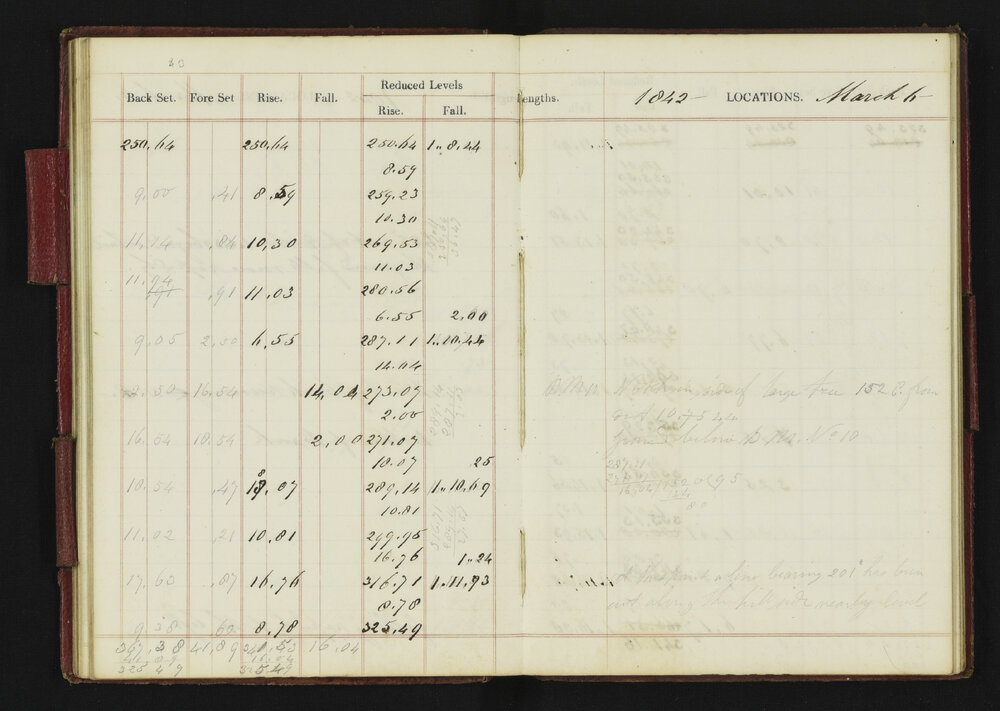 Back Set. Fore Set Rise. Fall. Reduced Levels Lengths. 1842 LOCATIONS. March 6
Rise. Fall.
250.64 250.64 250.64 1..8.44
8.59
9.00 .41 8.59 259.23
10.30
11.14 .84 10.30 269.53
11.03
11.94 .91 11.03 280.56
6.55 2.00
9.05 2.50 6.55 287.11 1..10.44
14.04
2.50 16.54 14.04 273.07 side of large tree 152 E. from
2.00
16.54 18.54 2.00 271.07 ground below B.M. No 10
18.07 .25
18.54 .47 18.07 289.14 1..10.69
10.81
11.02 .21 10.81 299.95
16.76 1..24
17.63 .87 16.76 316.71 1..11.93 At this point a line bearing 201° has been
8.78 cut along the hill side nearly level
9.38 .60 8.78 325.49
367.38 41.89 341.53 16.04
41.89 16.04
325.49 325.49